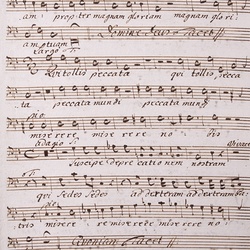 am propter magnam gloriam magnam glori:
am tuam Domine Deus Tacet
Largo
Qui tollis peccata qui tollis pecca
ta peccata mundi peccata mundi
mise rere mise rere no bis
adagio
Suscipe depre cationem nostram
qui Sedes Sedes ad dexteram ad dexteram Pa:
tris misere re misere re mise rere no
Quoniam Tacet